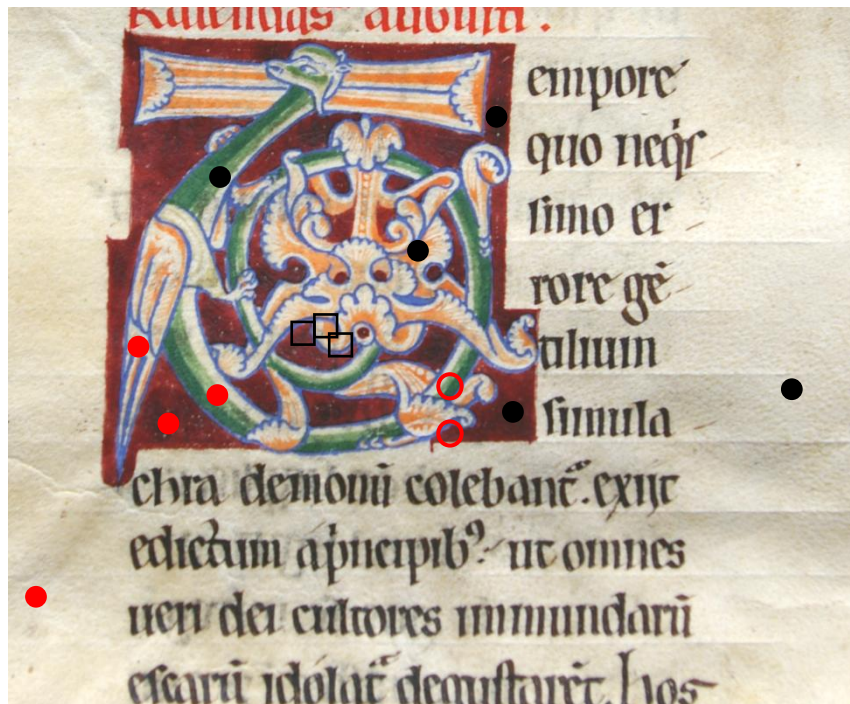 Kalendas augusti.
Tempore
quo neq̃s
simo er
rore gē
tilium
simula
chra demonū colebant᷑. exiit
edictum ap̃ncipib⁹. ut omnes
ueri dei cultores immundarū
escarū idolat᷑ degustarēt. hos